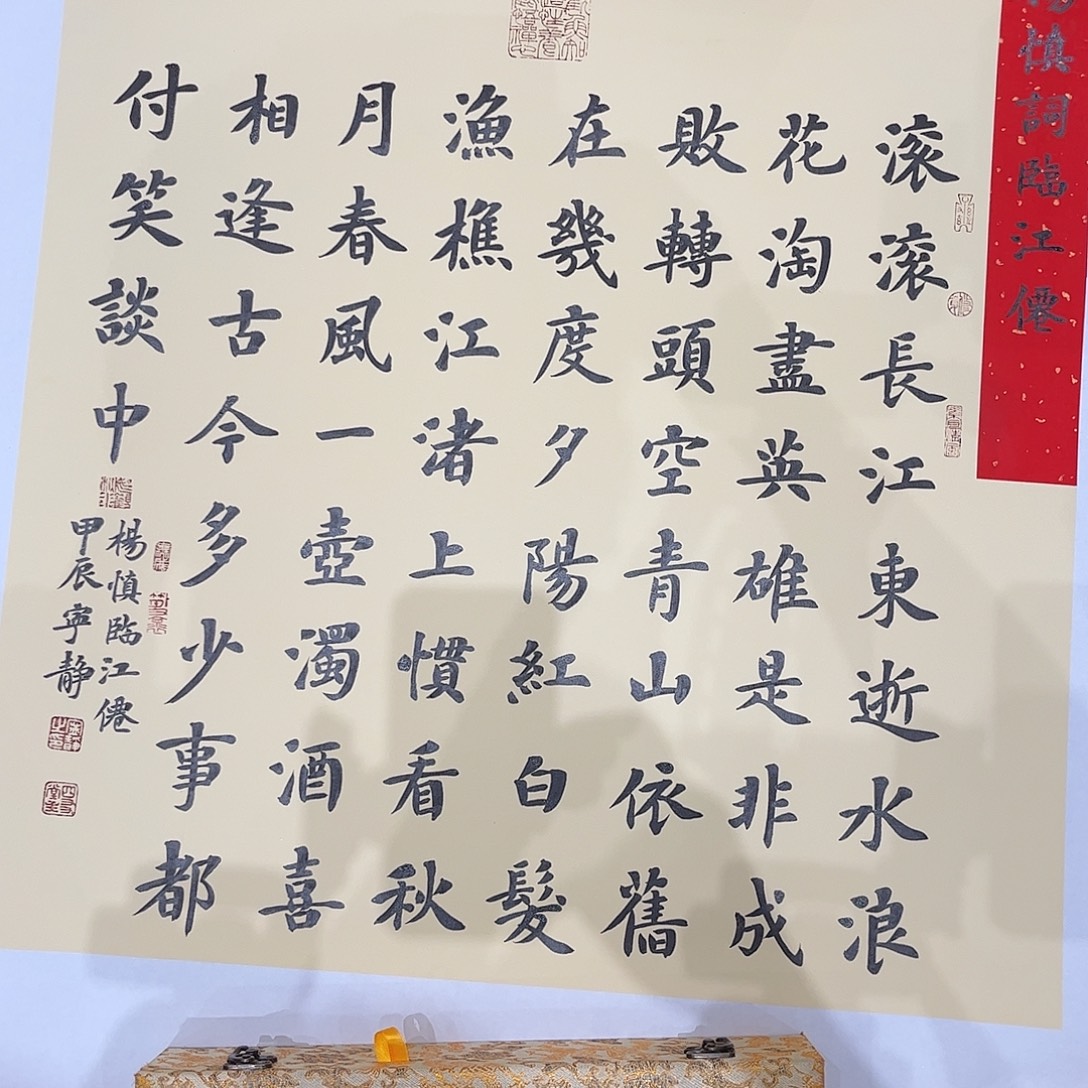 慎詞臨江僊
滚滚長江東逝水浪
花淘盡英雄是非成
敗轉頭空青山依舊
在幾度夕陽紅白髮
漁樵江渚上慣看秋
月春風一壺濁酒喜
相逢古今多少事都
付笑談中
楊慎臨江僊
甲辰宁静